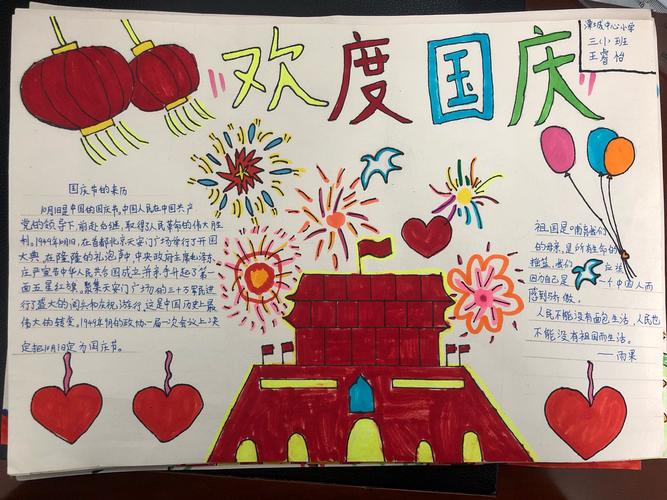 "欢度国庆"
中心小学
三 班
王睿怡
国庆节的来历
10月1日是中国的国庆节,中国人民在中国共产
党的领导下,前赴后继,取得了人民革命的伟大胜
利。1949年10月1日,在首都北京天安门广场举行了开国
大典,在隆隆的礼炮声中,中央政府主席毛泽东
庄严宣告中华人民共和国成立,并亲手升起了第
一面五星红旗。聚集天安门广场的三十万军民进
行了盛大的阅兵和庆祝游行,这是中国历史上最
伟大的转变,1949年9月的政协一届一次会议上决
定把10月1日定为国庆节。
祖国是哺育我们
的母亲,是所生命的
摇篮,我们 应该
因为自己是 一个中国人而
感到骄傲。
人民不能没有面包生活,人民也
不能没有祖国而生活。
——雨果